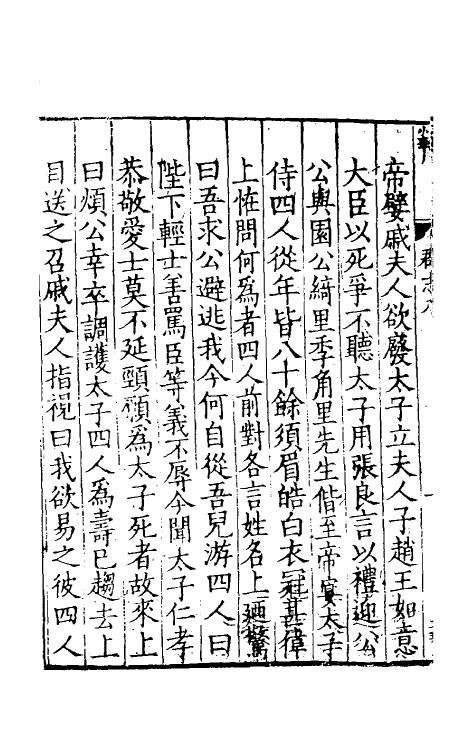 帝嬖戚夫人欲廢太子立夫人子趙王如意
大臣以死爭不聽太子用張良言以禮迎公
公與園公綺里季角里先生偕至帝宴太子
侍四人從年皆八十餘須眉皓白衣冠甚偉
上恠問何爲者四人前對各言姓名上廼驚
曰吾求公避逃我今何自從吾兒游四人曰
陛下輕士善罵臣等義不辱今聞太子仁孝
恭敬愛士莫不延頸願爲太子死者故來上
曰煩公幸卒調護太子四人爲壽已趨去上
目送之召戚夫人指視曰我欲易之彼四人